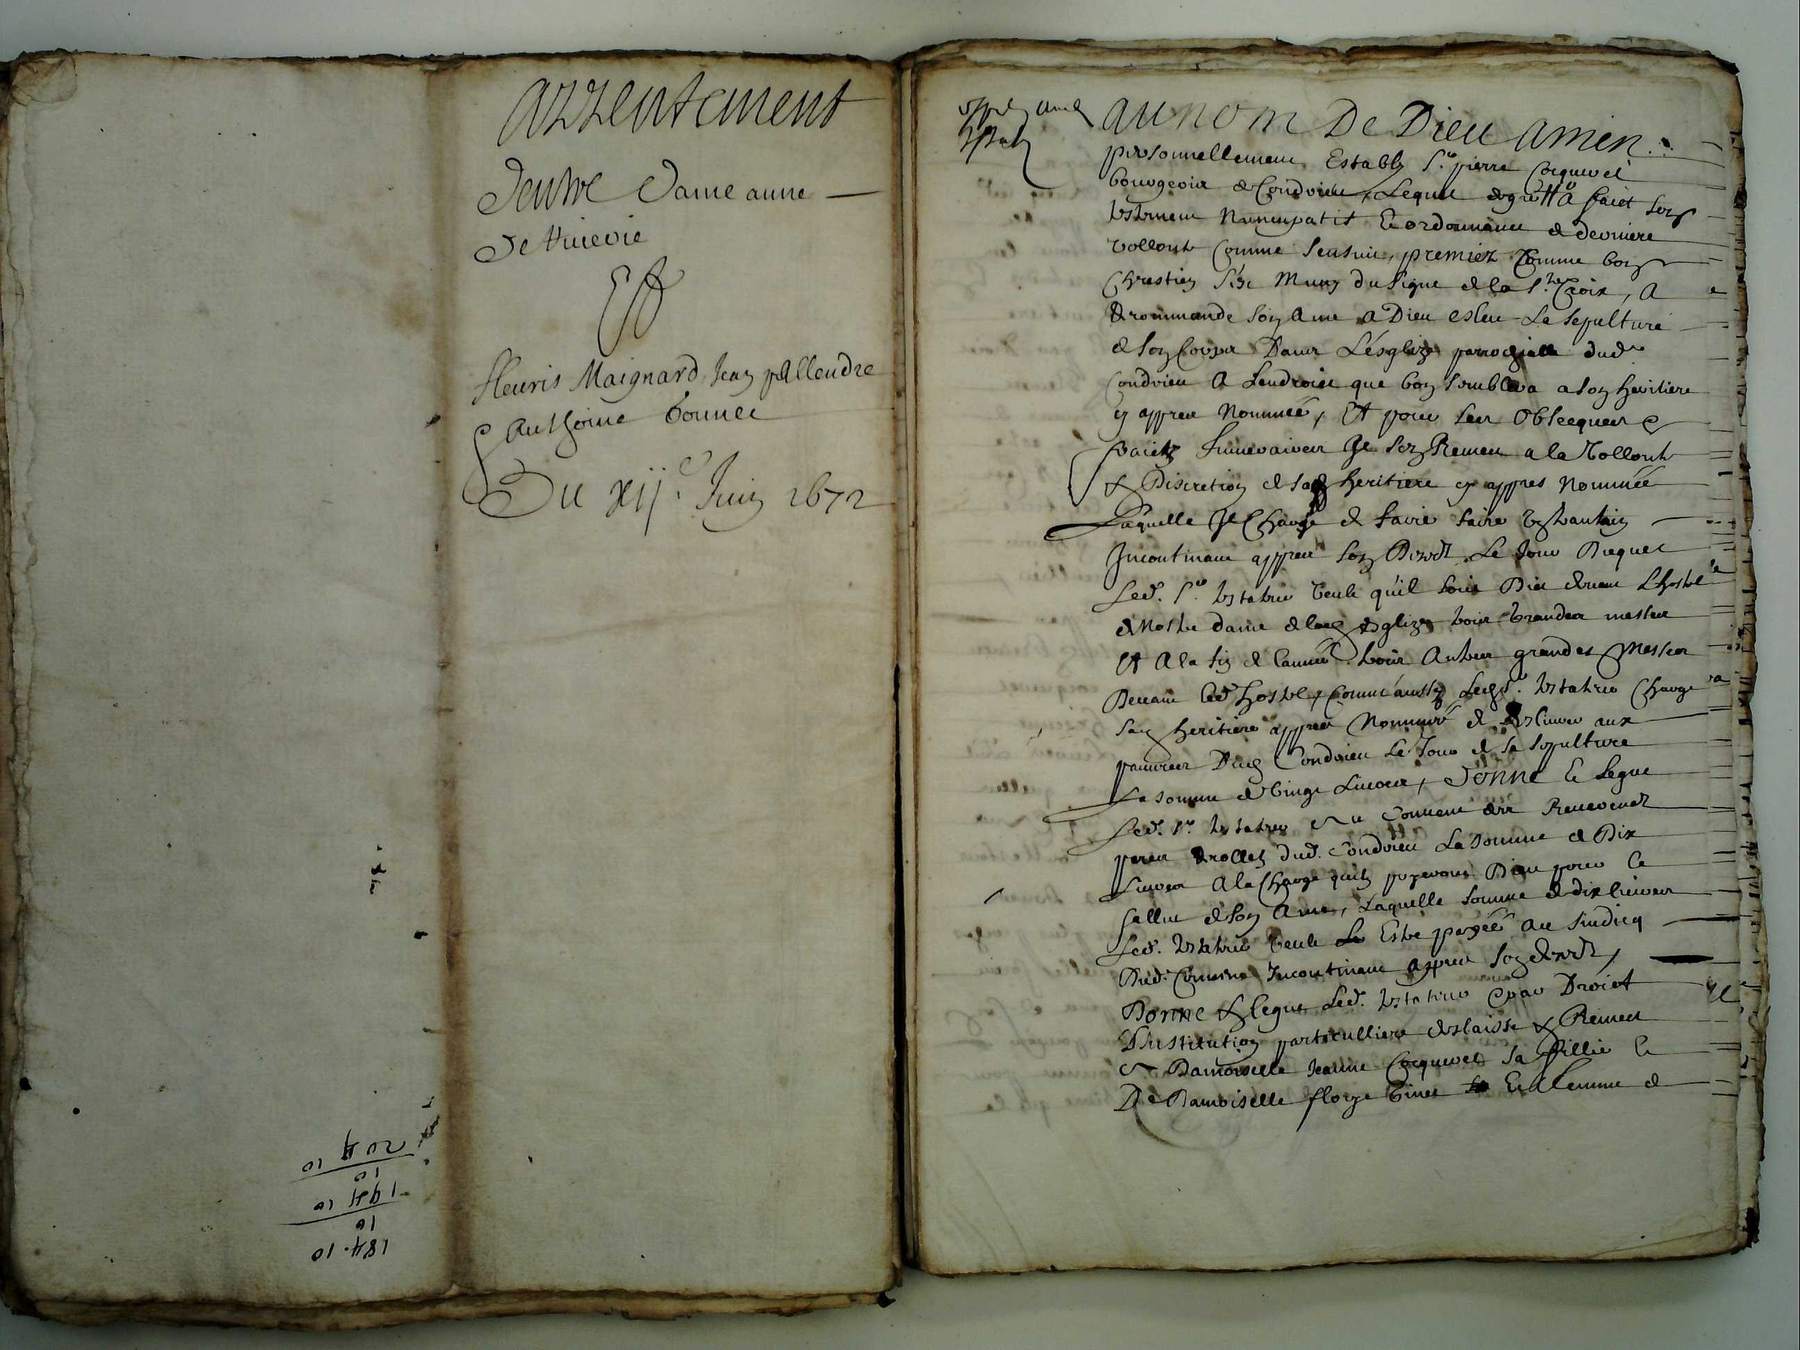 arrentement
Dentre Dame anne
De
Et
fleuris Maignard Jean pallendre
& Anthoine bonnet
Du xije. Juin 1672
204 10
10
194 10
10
184. 10
au nom De Dieu amen
personnellement Estably Sr. pierre Coquevet
bourgeois de Condrieu, Lequel de gre a faict son
testament Nuncupatif & ordonnance de derniere
vollonte Comme Sensuit, premier Comme bon
Chrestien sest Muny du signe de la Ste. Croix, A
Recommande son Ame a Dieu esleu La sepulture
de son Corps Dans Lesglize parrochialle dud.
Condrieu A Lendroict que bon semblera a son heritiere
cy appres Nommée, Et pour ses Obseques &
fraictz funeraires se remet a la Vollonte
& Discretion de sad heritiere cy appres Nommée
Laquelle Il Charge de faire faire
Incontinant appres son Deces Le Jour Duquel
Led. Sr. testateur veult qu'il soit Dict devant Lhostel
de Nostre dame de lad esglize trois grandes messes
Et A la fin de lannée trois Autres grandes Messes
Devant led hostel, Comme aussy Led Sr. testateur Charge
sad heritiere appres Nommée de deslivrer aux
pauvres Dud Condrieu Le Jour de sa sepulture
La somme de Vingt Livres, Donne & Legue
Led. Sr. testateur Au Couvent des Reverendz
peres Recolletz dud. Condrieu La somme de Dix
Livres A la Charge quilz prieront Dieu pour le
sallut de son Ame, Laquelle somme de dix livres
Led. testateur veult Estre payée au sindicq
Dud. Couvent Incontinant appres son deces,
Donne & legue Led. testateur & par Droict
Dinstitution particulliere deslaisse & Remet
A Damoiselle Jeanne Coquevet sa fillie &
De Damoiselle